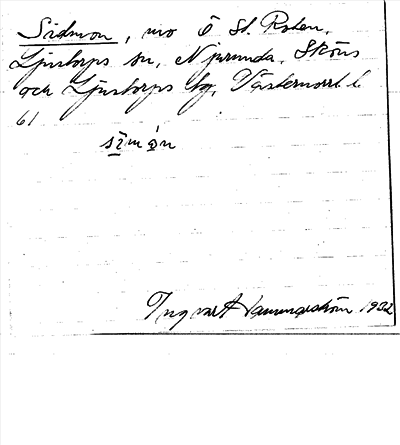 Sidmon, mo Ö St. Roten,
Ljustorps sn, Njurunda, Sköns
och Ljustorps tg, Västernorrl. l.
61
Ingvar Hammarström 1932